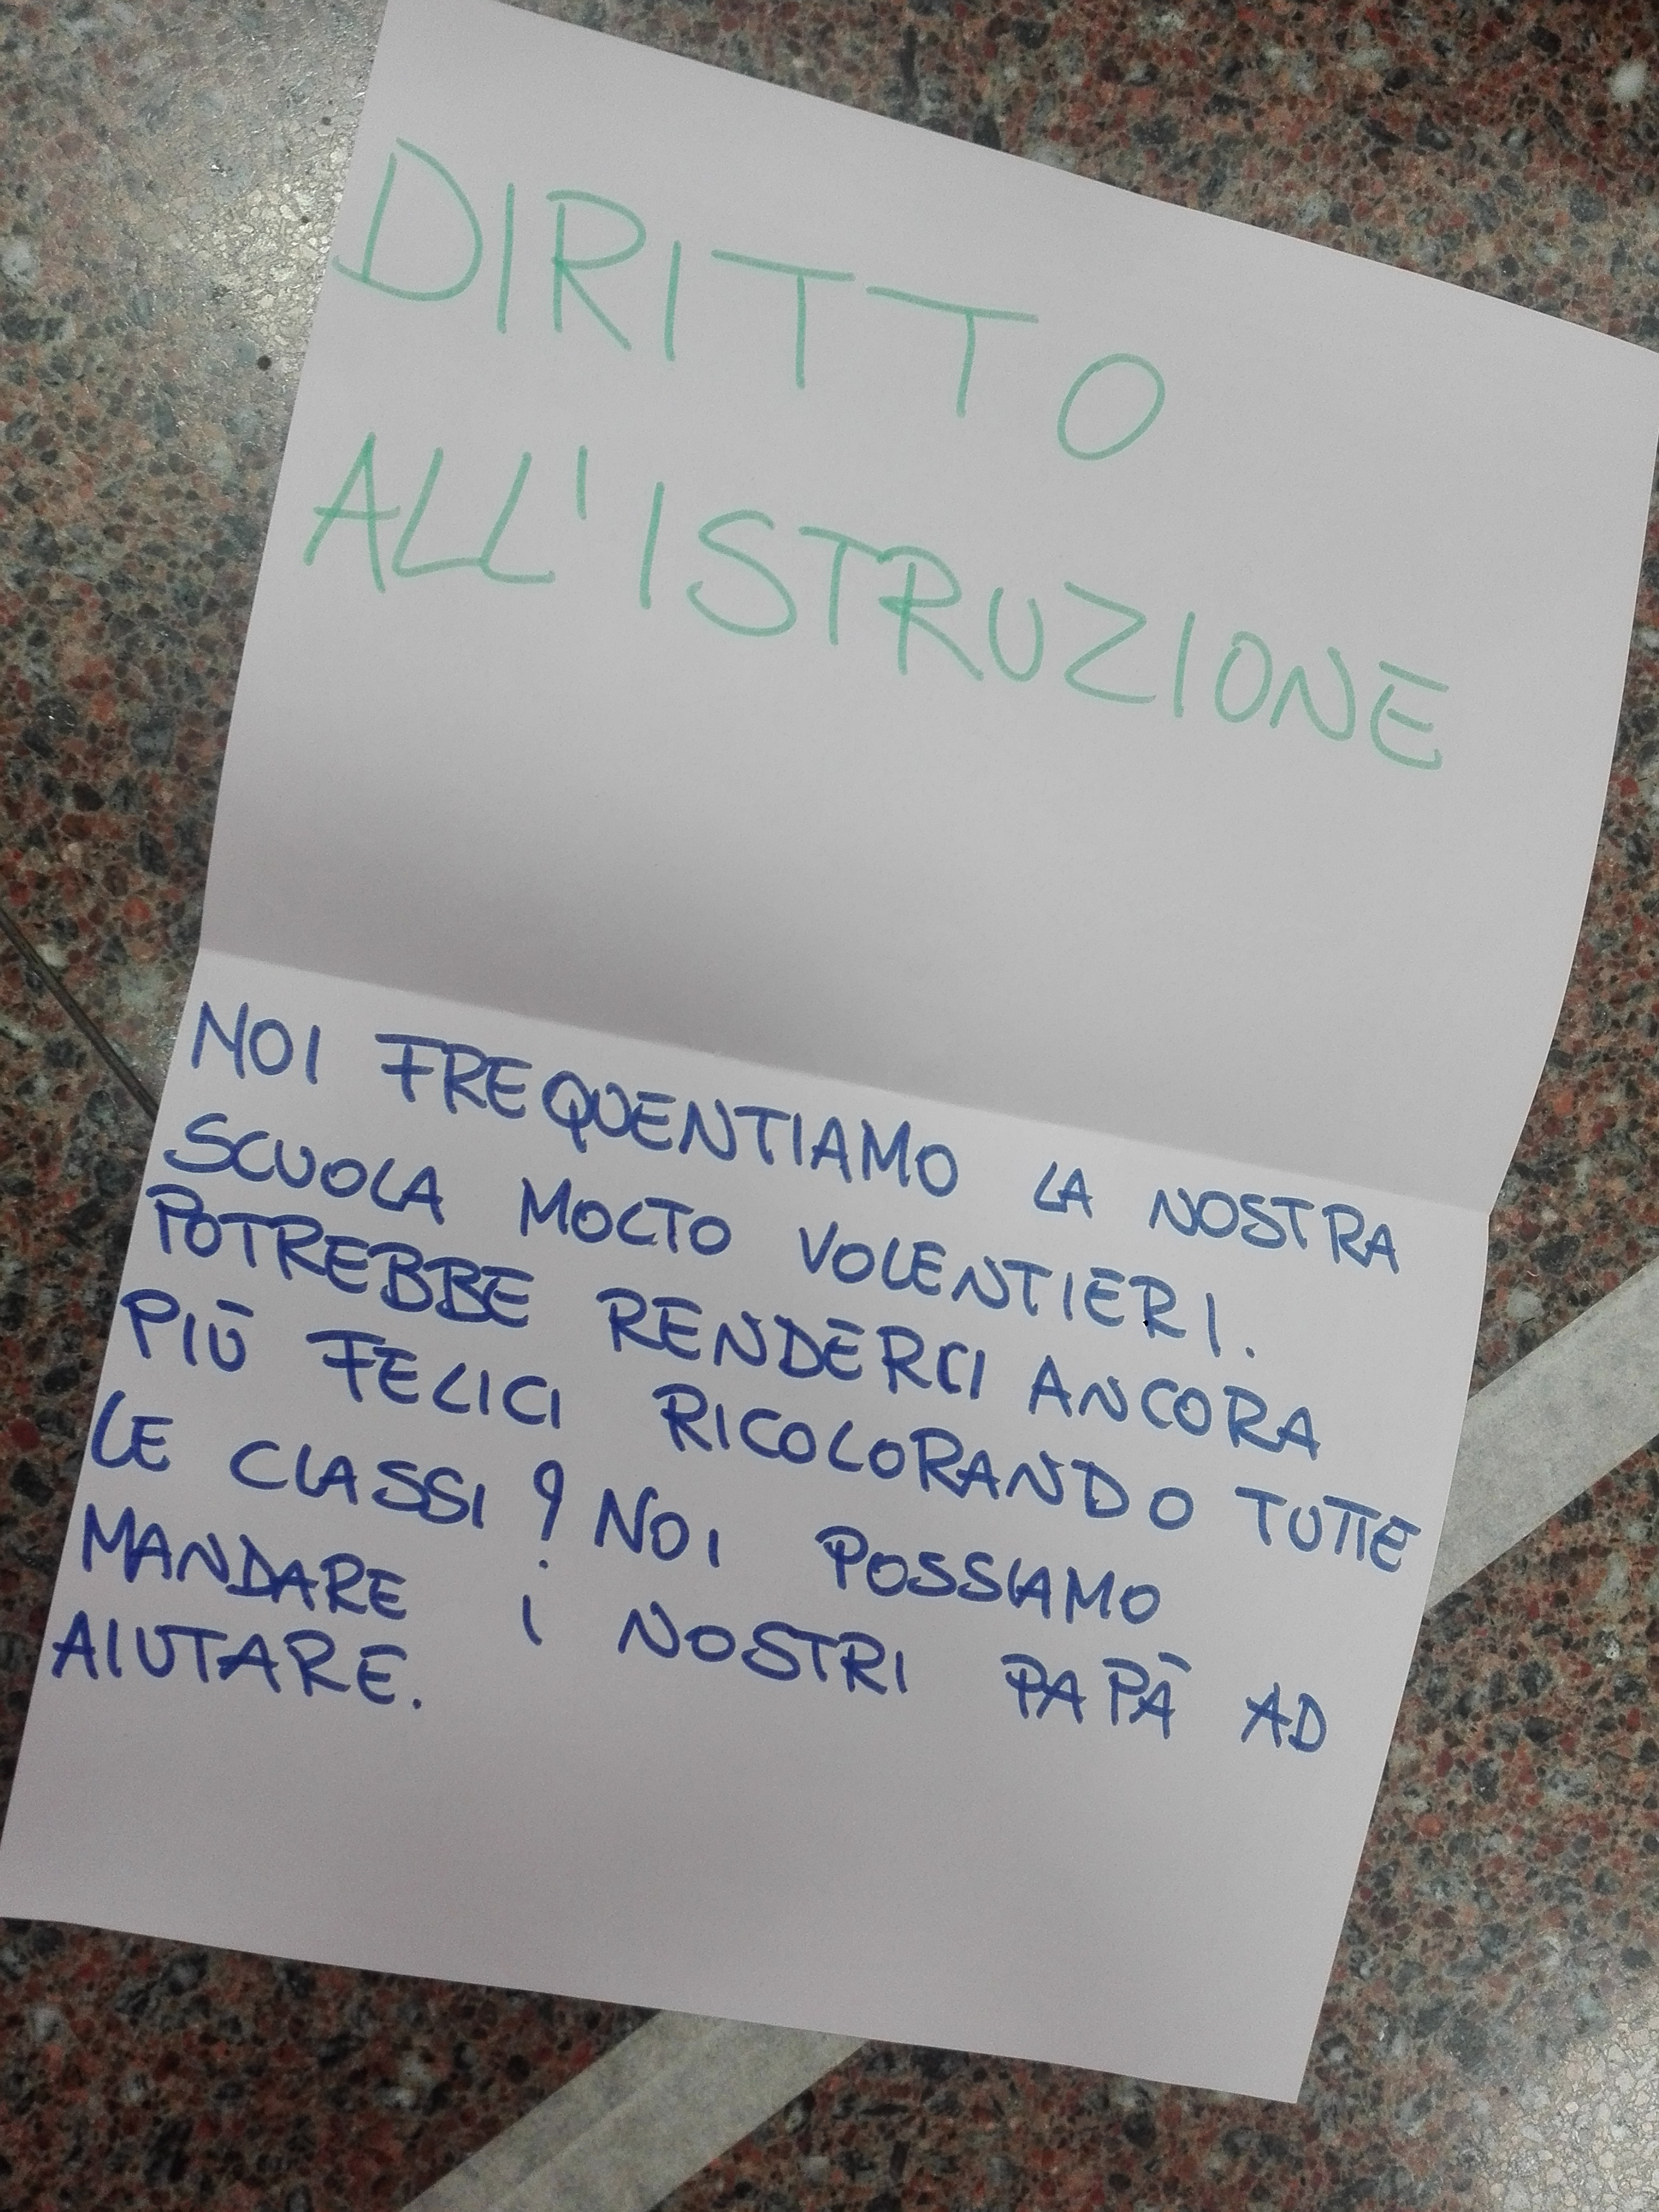 DIRITTO
ALL'ISTRUZIONE
NOI FREQUENTIAMO LA NOSTRA
SCUOLA MOLTO VOLENTIERI.
POTREBBE RENDERCI ANCORA
PIÙ FELICI RICOLORANDO TUTTE
LE CLASSI? NOI POSSIAMO
MANDARE i NOSTRI PAPÀ AD
AIUTARE.